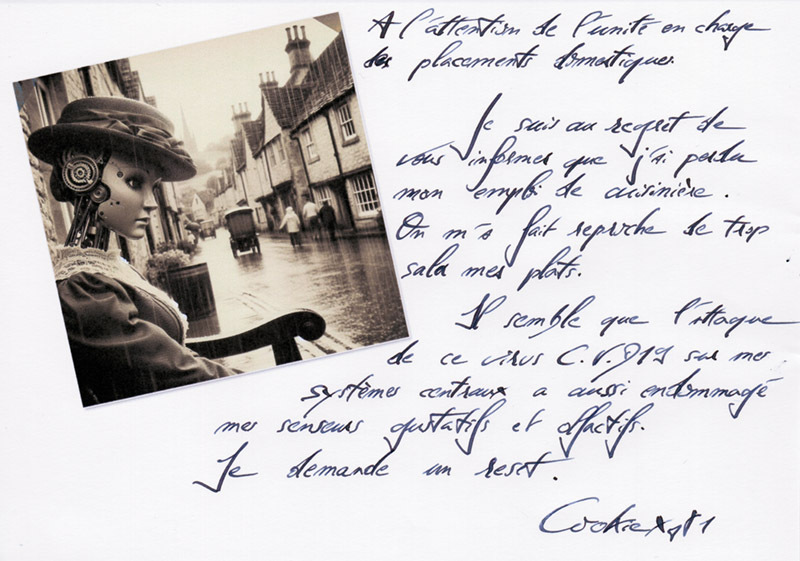 A l'attention de l'unité en charge
des placements domestiques.
Je suis au regret de
vous informer que j'ai perdu
mon emploi de cuisinière.
On m'a fait reproche de trop
saler mes plats.
Il semble que l'attaque
de ce virus C.V.D19 sur mes
systèmes centraux a aussi endommagé
mes senseurs gustatifs et olfactifs.
Je demande un reset.